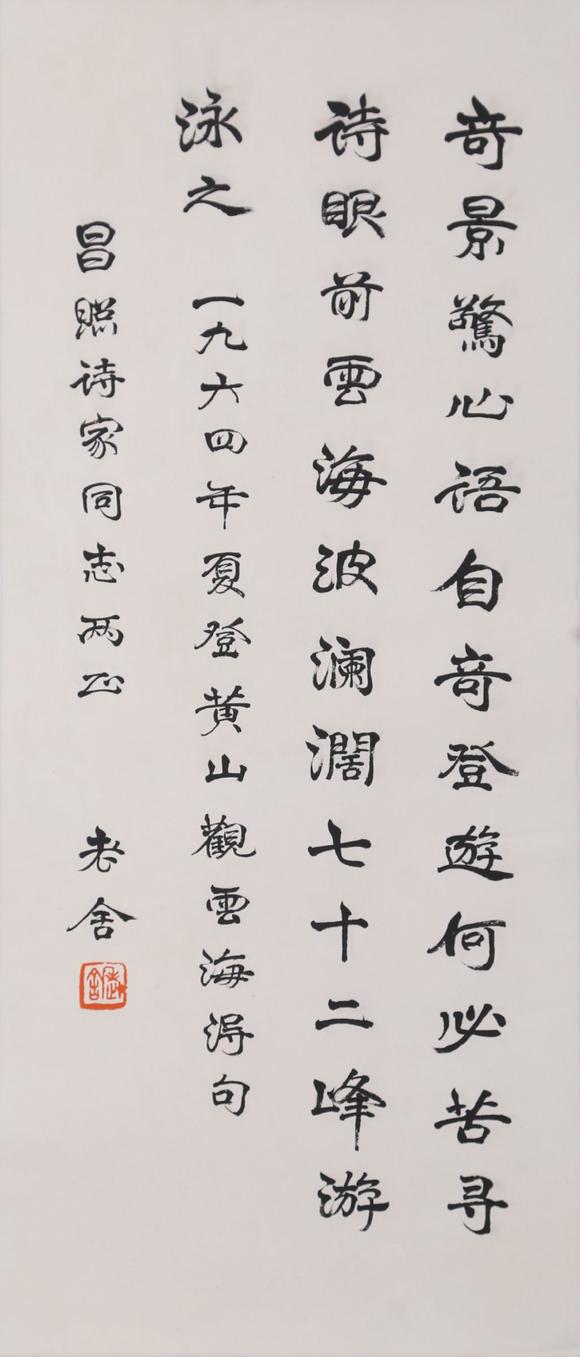 奇景驚心语自奇登遊何必苦寻
诗眼前雲海波澜濶七十二峰游
泳之 一九六四年夏登黄山觀雲海得句
昌照诗家同志两正 老舍
老舍